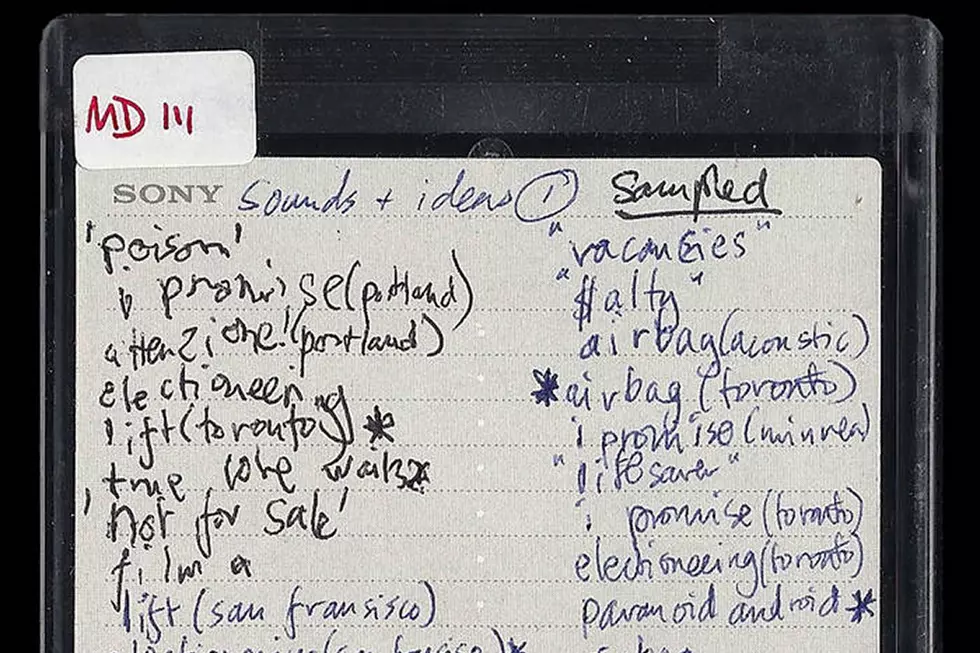 MD 111
SONY sounds + ideas ① sampled
'poison'
i promise (portland)
attenzione! (portland)
electioneering
lift (toronto) *
true love waits *
'not for sale'
film a
lift (san fransisco)
"vacancies"
airbag (acoustic)
* airbag (toronto)
i promise
"lifesaver"
i promise (toronto)
electioneering (toronto)
paranoid android *